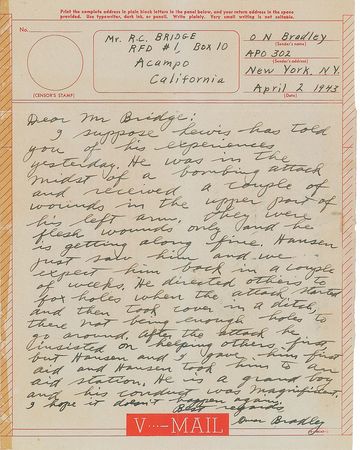 Print the complete address in plain block letters in the panel below, and your return address in the space
provided. Use typewriter, dark ink, or pencil. Write plainly. Very small writing is not suitable.
No.
(CENSOR'S STAMP)
Mr. R.C. BRIDGE
RFD #1, Box 10
Acampo
California
O N Bradley
(Sender's name)
APO 302
(Sender's address)
New York, N.Y.
April 2 1943
(Date)
Dear Mr Bridge:
I suppose Lewis has told
you of his experiences
yesterday. He was in the
midst of a bombing attack
and received a couple of
wounds in the upper part of
his left arm. They were
flesh wounds only and he
is getting along fine. Hansen
just saw him and we
expect him back in a couple
of weeks. He directed others to
fox holes when the attack started
and then took cover in a ditch,
there not being enough holes to
go around. After the attack he
insisted on helping others first,
but Hansen and I gave him first
aid and Hansen took him to an
aid station. He is a grand boy
and his conduct was magnificent
I hope it doesn't happen again.
Best regards
Omar Bradley
V···—MAIL